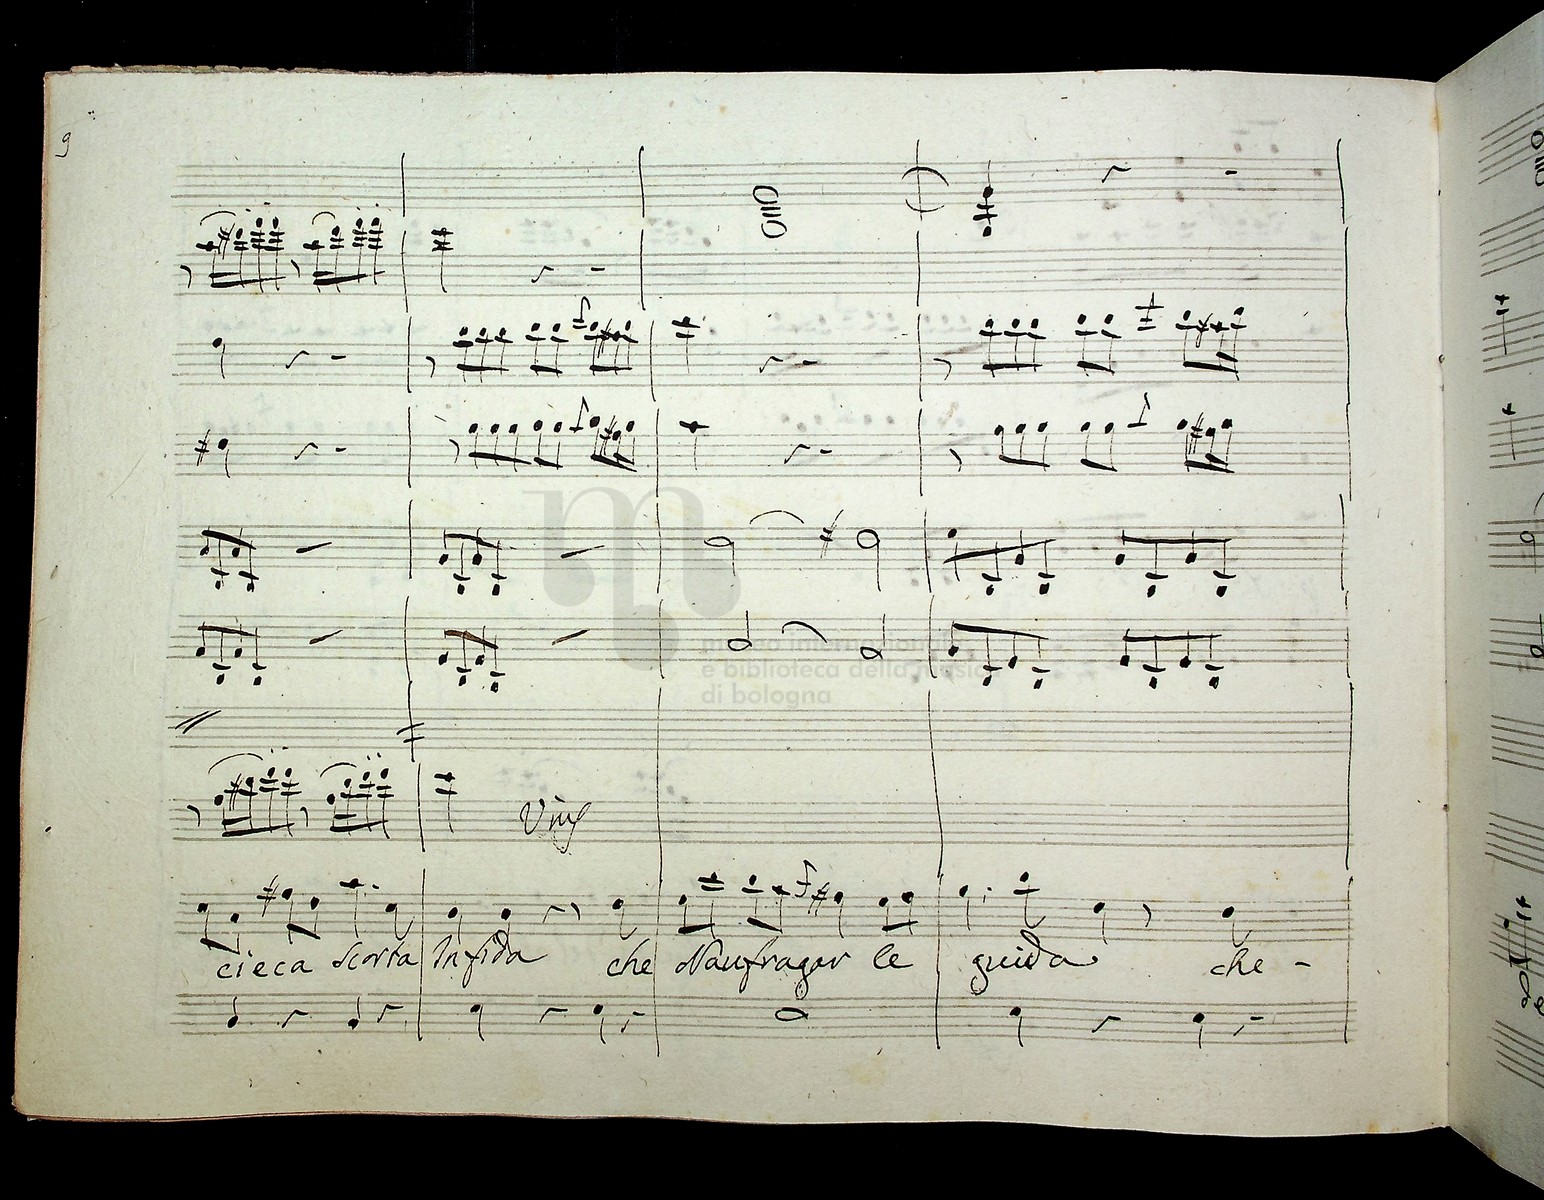 9
museo internazionale
e biblioteca della musica
di bologna
cieca scorta Infida che Naufragar le guida che -